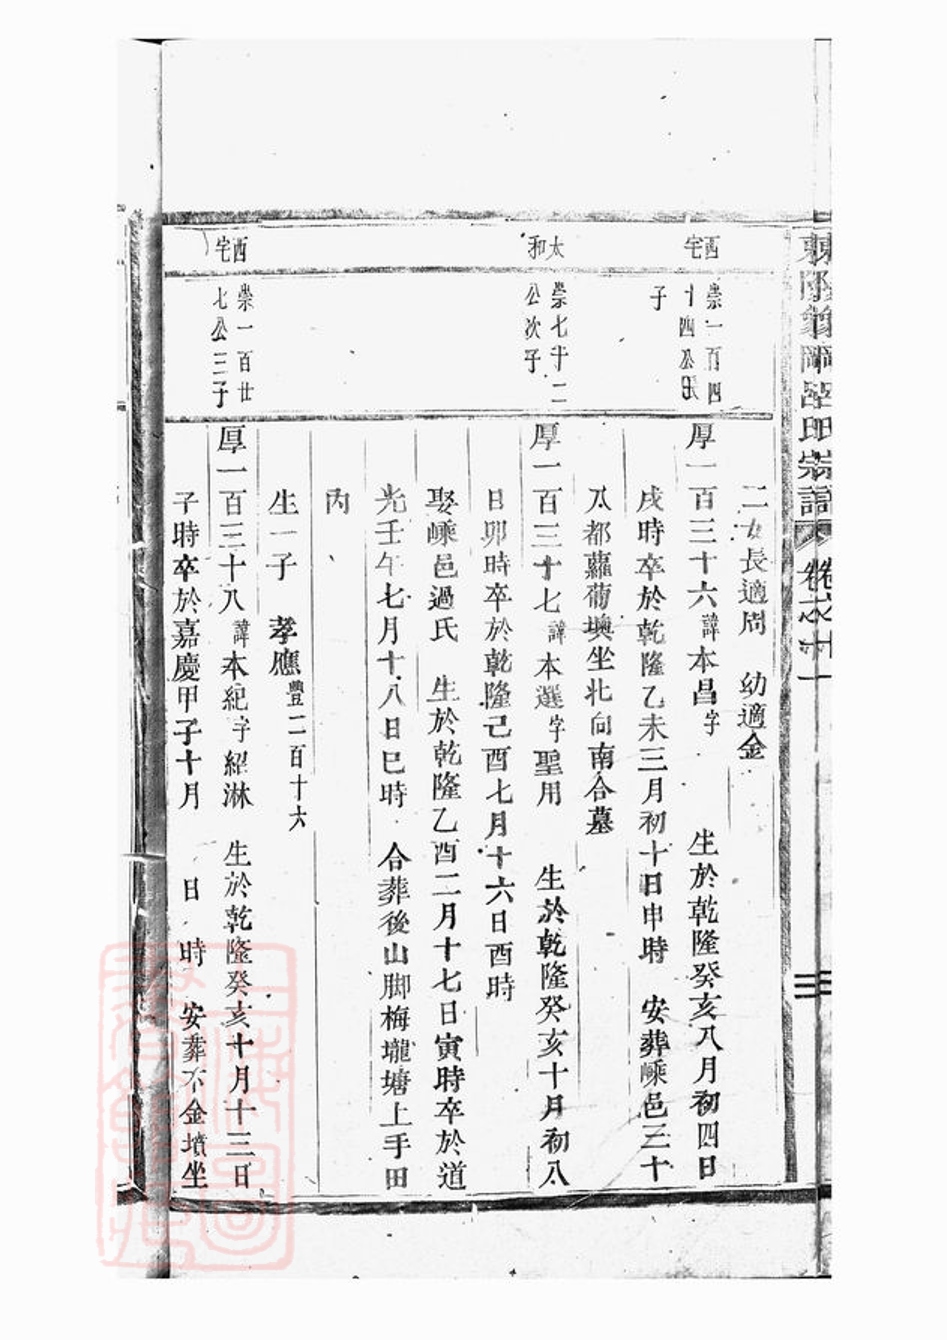 宗譜
卷之十一
三
二女長適周　幼適金
西宅
崇一百四十四公
子
厚一百三十六諱本昌字　生於乾隆癸亥八月初四日
戌時卒於乾隆乙未三月初十日申時　安葬嵊邑三十
八都蘿蔔墺坐北向南合墓
太和
崇七十二公次子
厚一百三十七諱本選字聖用　生於乾隆癸亥十月初八
日卯時卒於乾隆己酉七月十六日酉時
娶嵊邑過氏　生於乾隆乙酉二月十七日寅時卒於道
光壬午七月十八日巳時　合葬後山脚梅壠塘上手田
內
生一子　孝應豐二百十六
西宅
崇一百廿七公三子
厚一百三十八諱本紀字紹淋　生於乾隆癸亥十月十三日
子時卒於嘉慶甲子十月　日　時　安葬下金墳坐